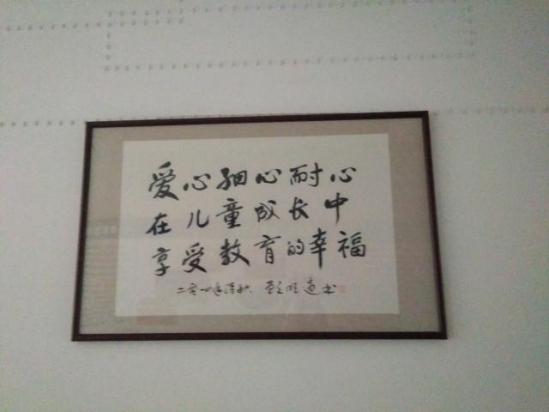 爱心细心耐心
在儿童成长中
享受教育的幸福
二零一四年清秋 书